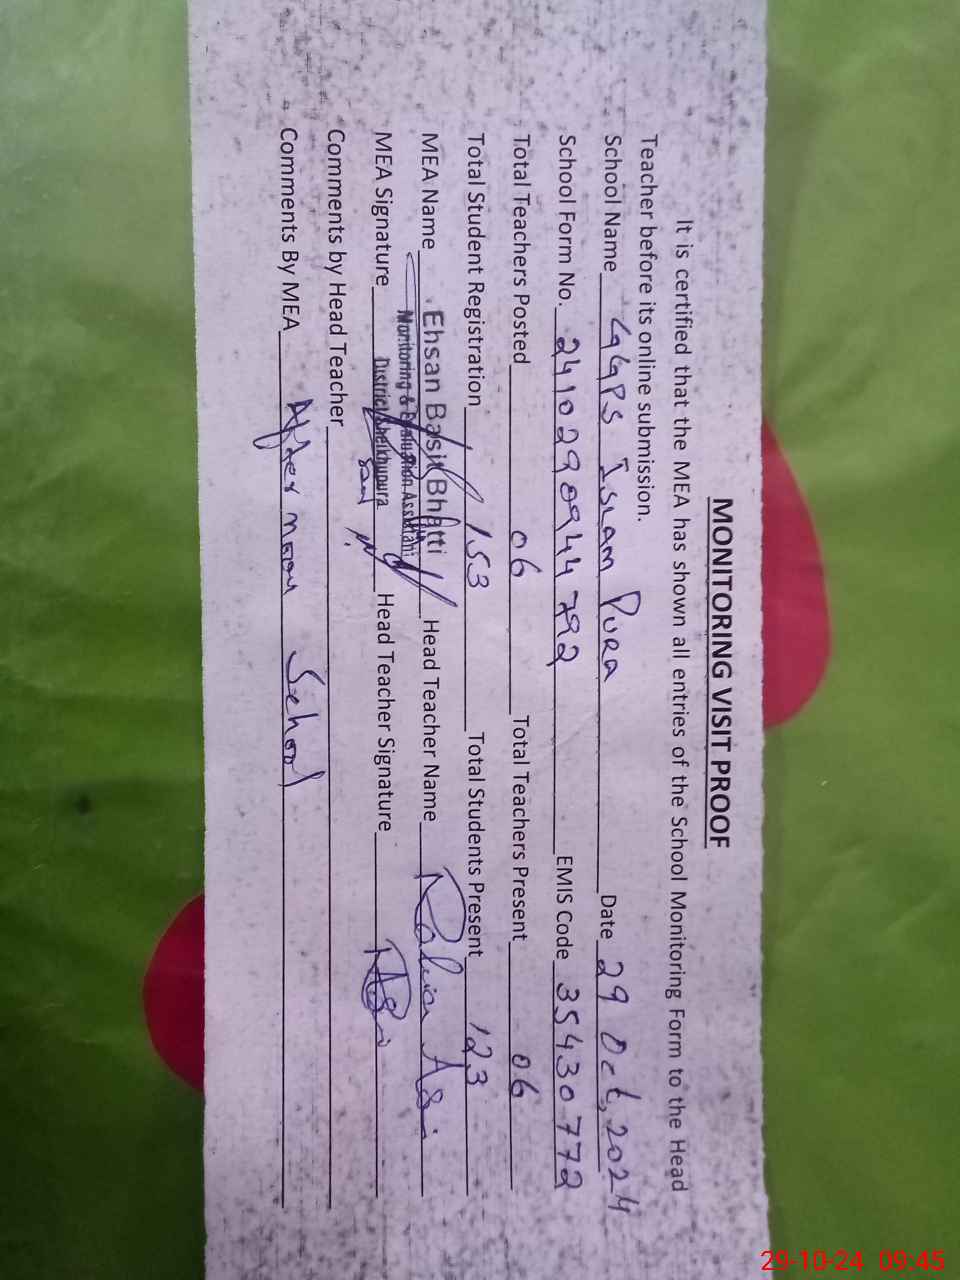 MONITORING VISIT PROOF
It is certified that the MEA has shown all entries of the School Monitoring Form to the Head
Teacher before its online submission.
School Name GGPS Islam Pura Date 29 Oct, 2024
School Form No. 2410290944792 EMIS Code 35430772
Total Teachers Posted 06 Total Teachers Present 06
Total Student Registration 153 Total Students Present 123
MEA Name Ehsan Basit Bhatti Head Teacher Name
Monitoring & Evaluation Assistant
MEA Signature District Sheikhupura Head Teacher Signature
Comments by Head Teacher
Comments By MEA Afternoon School
29-10-24 09:45